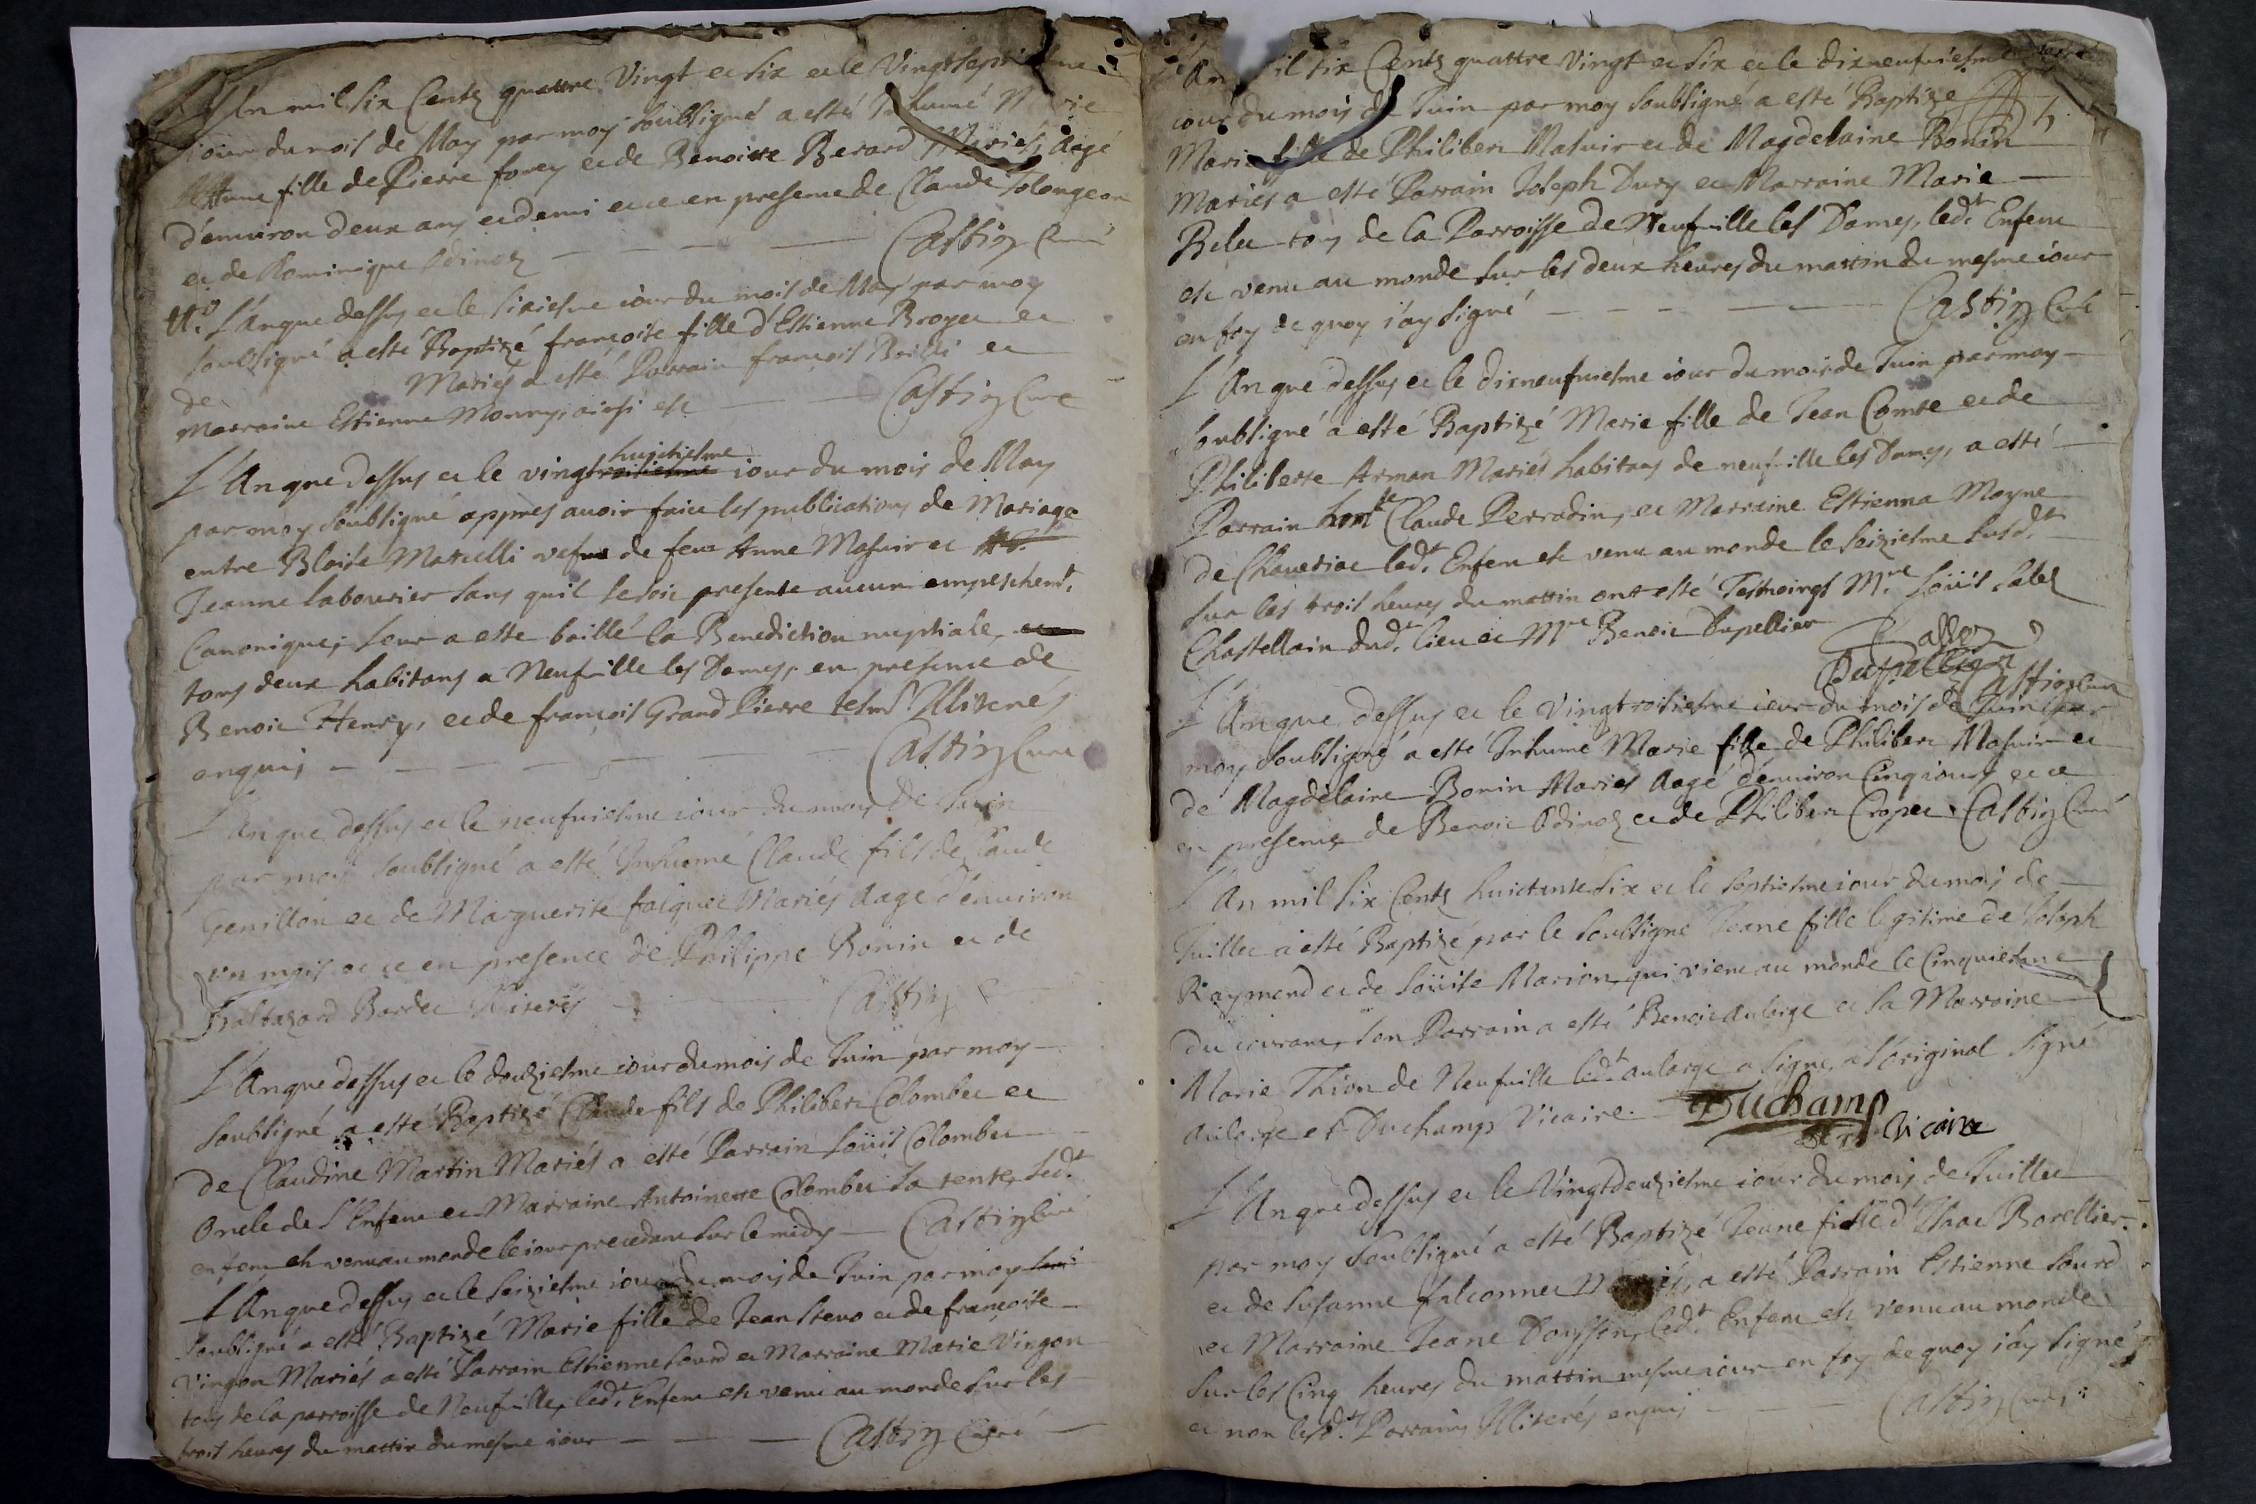 L'An mil six Centz quattre Vingt et six et le Vingtseptiesme
iour du mois de May par moy soubsigné a esté Inhumé Marie
Anne fille de Pierre forey et de Benoitte Berard Mariés, Aagé
d'enuiron deux ans et demi et ce en presence de Claude Tolongeon
et de Dominique Odinoz Castin Curé
L'an que dessus et le sixiesme iour du mois de May par moy
soubsigné a esté Baptizé françoise fille d'Estienne Broyer et
de Mariés a esté Parrain françois Brilli et
Marraine Estienne Monny, ainsi est Castin Curé
huictiesme
L'An que dessus et le vingt troisiesme iour du mois de May
par moy soubsigné appres auoir faict les publications de Mariage
entre Blaise Matrelli vefue de feue Anne Masuir et
Jeanne labourier sans quil se soit presenté aucun empeschemt.
Canonique, leur a esté baillé la Benediction nuptiale,
tous deux habitans a Neufuille les Dames, en presence de
Benoit Henry, et de françois Grand Pierre tesm. Illiterés
enquis Castin Curé
L'An que dessus et le neufuiesme iour du mois de Juin
par moy soubsigné a esté Inhumé Claude fils de Claude
Genillon et de Marguerite faiguet Mariés Aagé d'enuiron
vn mois et ce en presence de Philippe Bonin et de
Baltazard Bardet Illiterés Castin
L'An que dessus et le douziesme iour du mois de Juin par moy
soubsigné a esté Baptizé Claude fils de Philibert Colombet et
de Claudine Martin Mariés a esté Parrain Loüis Colombet
Oncle de l'Enfent et Marraine Antoinette Colombet sa tente, led.t
enfent est venu au monde le iour precedant sur le midy Castin Curé
L'An que dessus et le seiziesme iour du mois de Juin par moy
soubsigné a esté Baptizé Marie fille de Jean Steuo et de françoise
Vingon Mariés a esté Parrain Estienne Sourd et Marraine Marie Vingon
tous de la parroisse de Neufuille, led.t Enfent est venu au monde sur les
trois heures du mattin du mesme iour Castin Curé
An mil six Centz quattre Vingt et six et le dixneufuiesme
iour du mois de Juin par moy soubsigné a esté Baptizé
Marie fille de Philibert Masuir et de Magdelaine Bonin
Mariés a esté Parrain Joseph Dury et Marraine Marie
Belet tous de la Parroisse de Neufuille les Dames, led.t Enfent
est venu au monde sur les deux heures du mattin du mesme iour
en foy de quoy i'ay signé Castin Curé
L'An que dessus et le dixneufuiesme iour du mois de Juin par moy
soubsigné a esté Baptizé Marie fille de Jean Comte et de
Philiberte Arman Mariés habitans de neufuille les Dames, a esté
Parrain hon.ble Claude Perradin, et Marraine Estienna Moyne
de Chaueriat led.t Enfent est venu au monde le seiziesme susd.t
sur les trois heures du mattin ont esté Tesmoings M.re Loüis Salez
Chastellain dud.t lieu et M.re Benoit Dupellier
Sallez
Dupellier
Castin Curé
L'An que dessus et le Vingtroisiesme iour du mois de Juin par
moy soubsigné a esté Inhumé Marie fille de Philibert Masuir et
de Magdelaine Bonin Mariés Aagé d'enuiron Cinq iours et ce
en presence de Benoit Odinoz et de Philibert Cropet Castin Curé
L'An mil six Centz huictante six et le septiesme iour du mois de
Juillet a esté Baptizé par le soubsigné Jeane fille legitime de Joseph
Raymond et de Loüise Marion, qui vient au monde le Cinquiesme
du courant, son Parrain a esté Benoit aularge et sa Marraine
Marie Thion de Neufuille led.t aularge a signé, a l'original signé
aularge et Duchamp Vicaire. Duchamp
Vicaire
L'An que dessus et le Vingtdeuziesme iour du mois de Juillet
par moy soubsigné a esté Baptizé Jeane fille d'Isaac Borellier
et de Susanne falconnet Mariés, a esté Parrain Estienne Sourd
et Marraine Jeane Dousson, led.t Enfent est venu au monde
sur les Cinq heures du mattin mesme iour en foy de quoy i'ay signé
et non lesd.ts Parrains Illiterés enquis Castin Curé